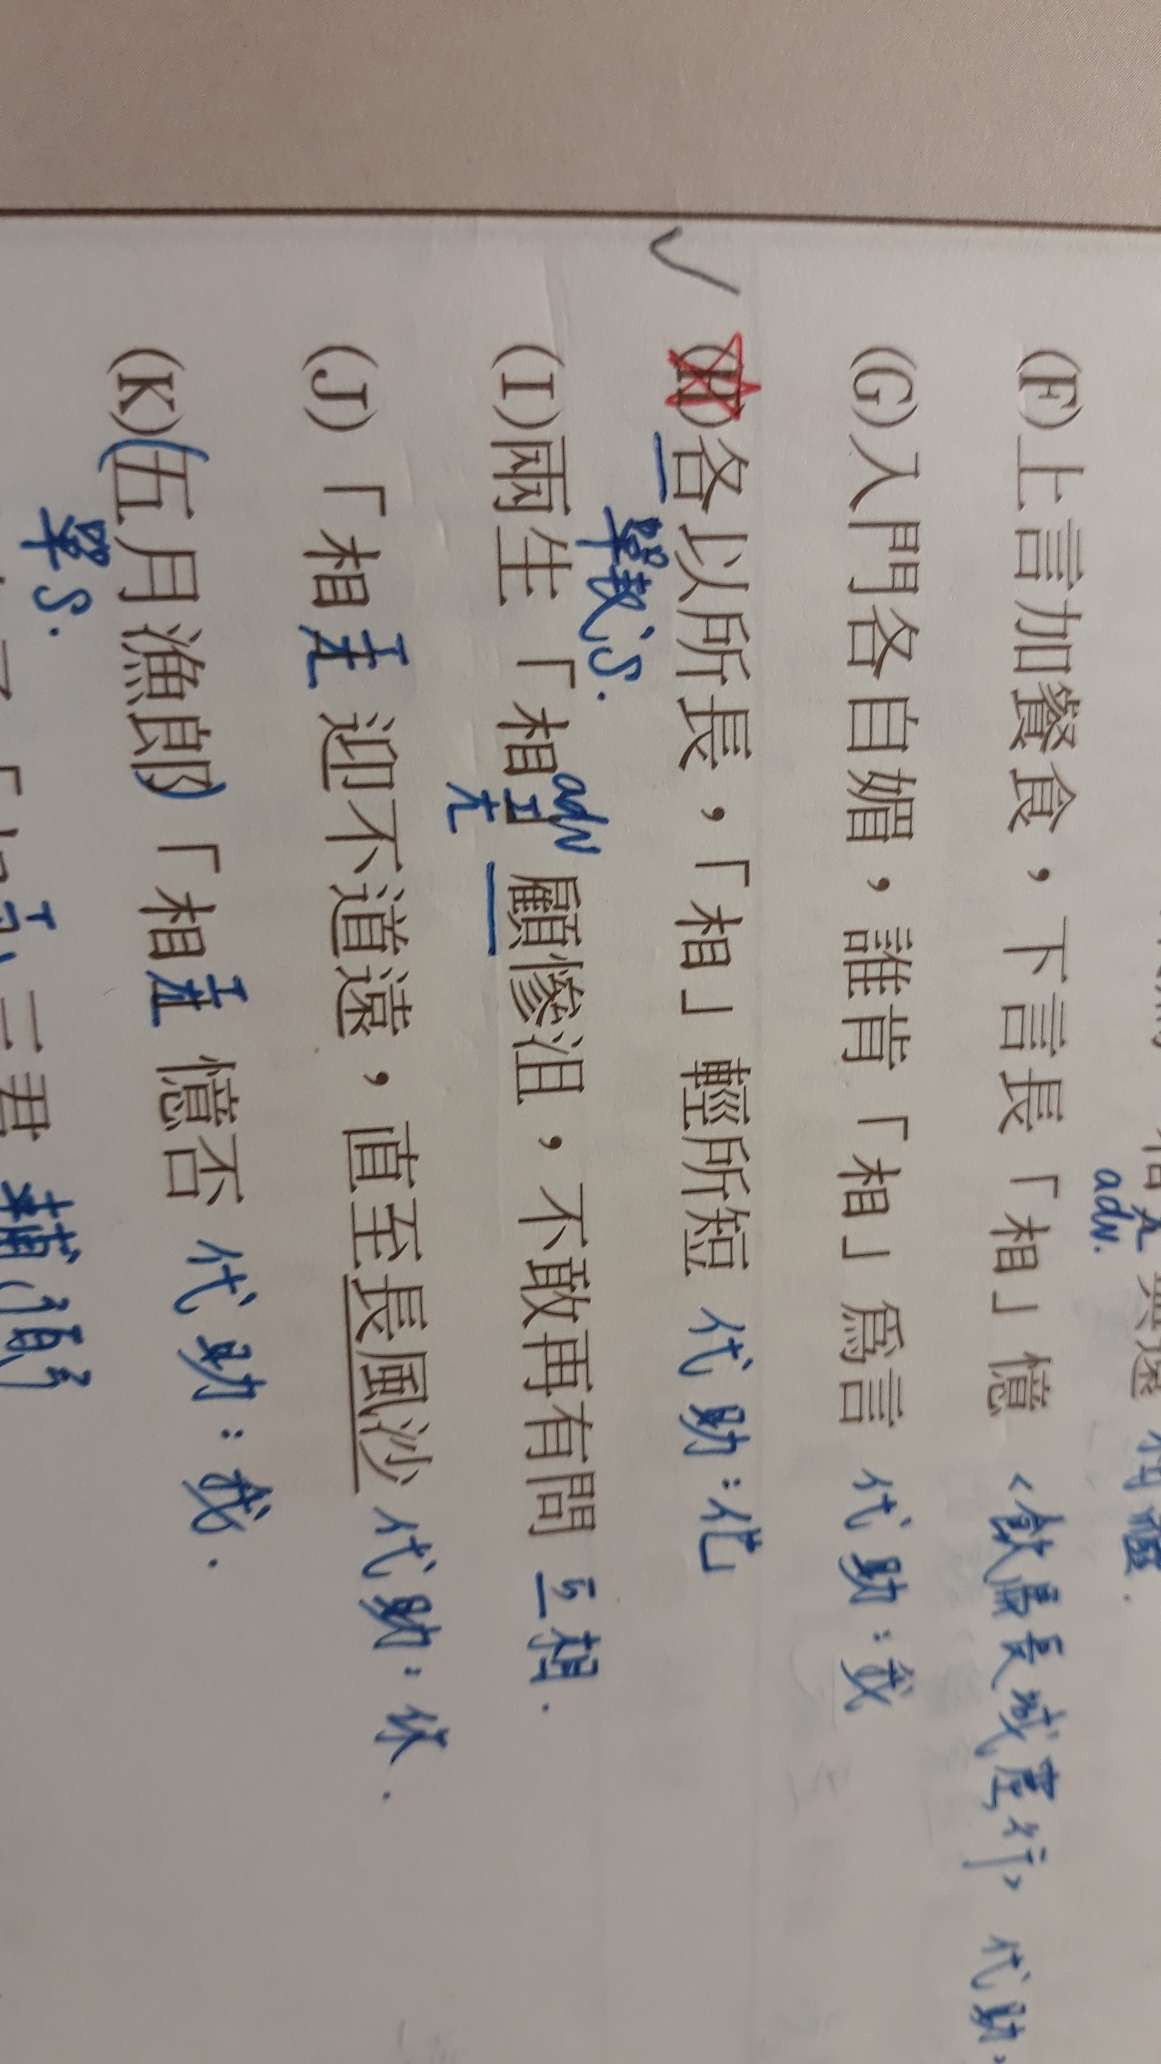 adv.
(F)上言加餐食，下言長「相」憶 <飲馬長城窟行> 代動:
(G)入門各自媚，誰肯「相」為言 代動:我
(H)各以所長，「相」輕所短 代動:他
單數S.
(I)兩生「相」顧慘沮，不敢再有問 互相.
adv
(J)「相」迎不道遠，直至長風沙 代動:你.
(K)五月漁郎「相」憶否 代動:我.
單S.